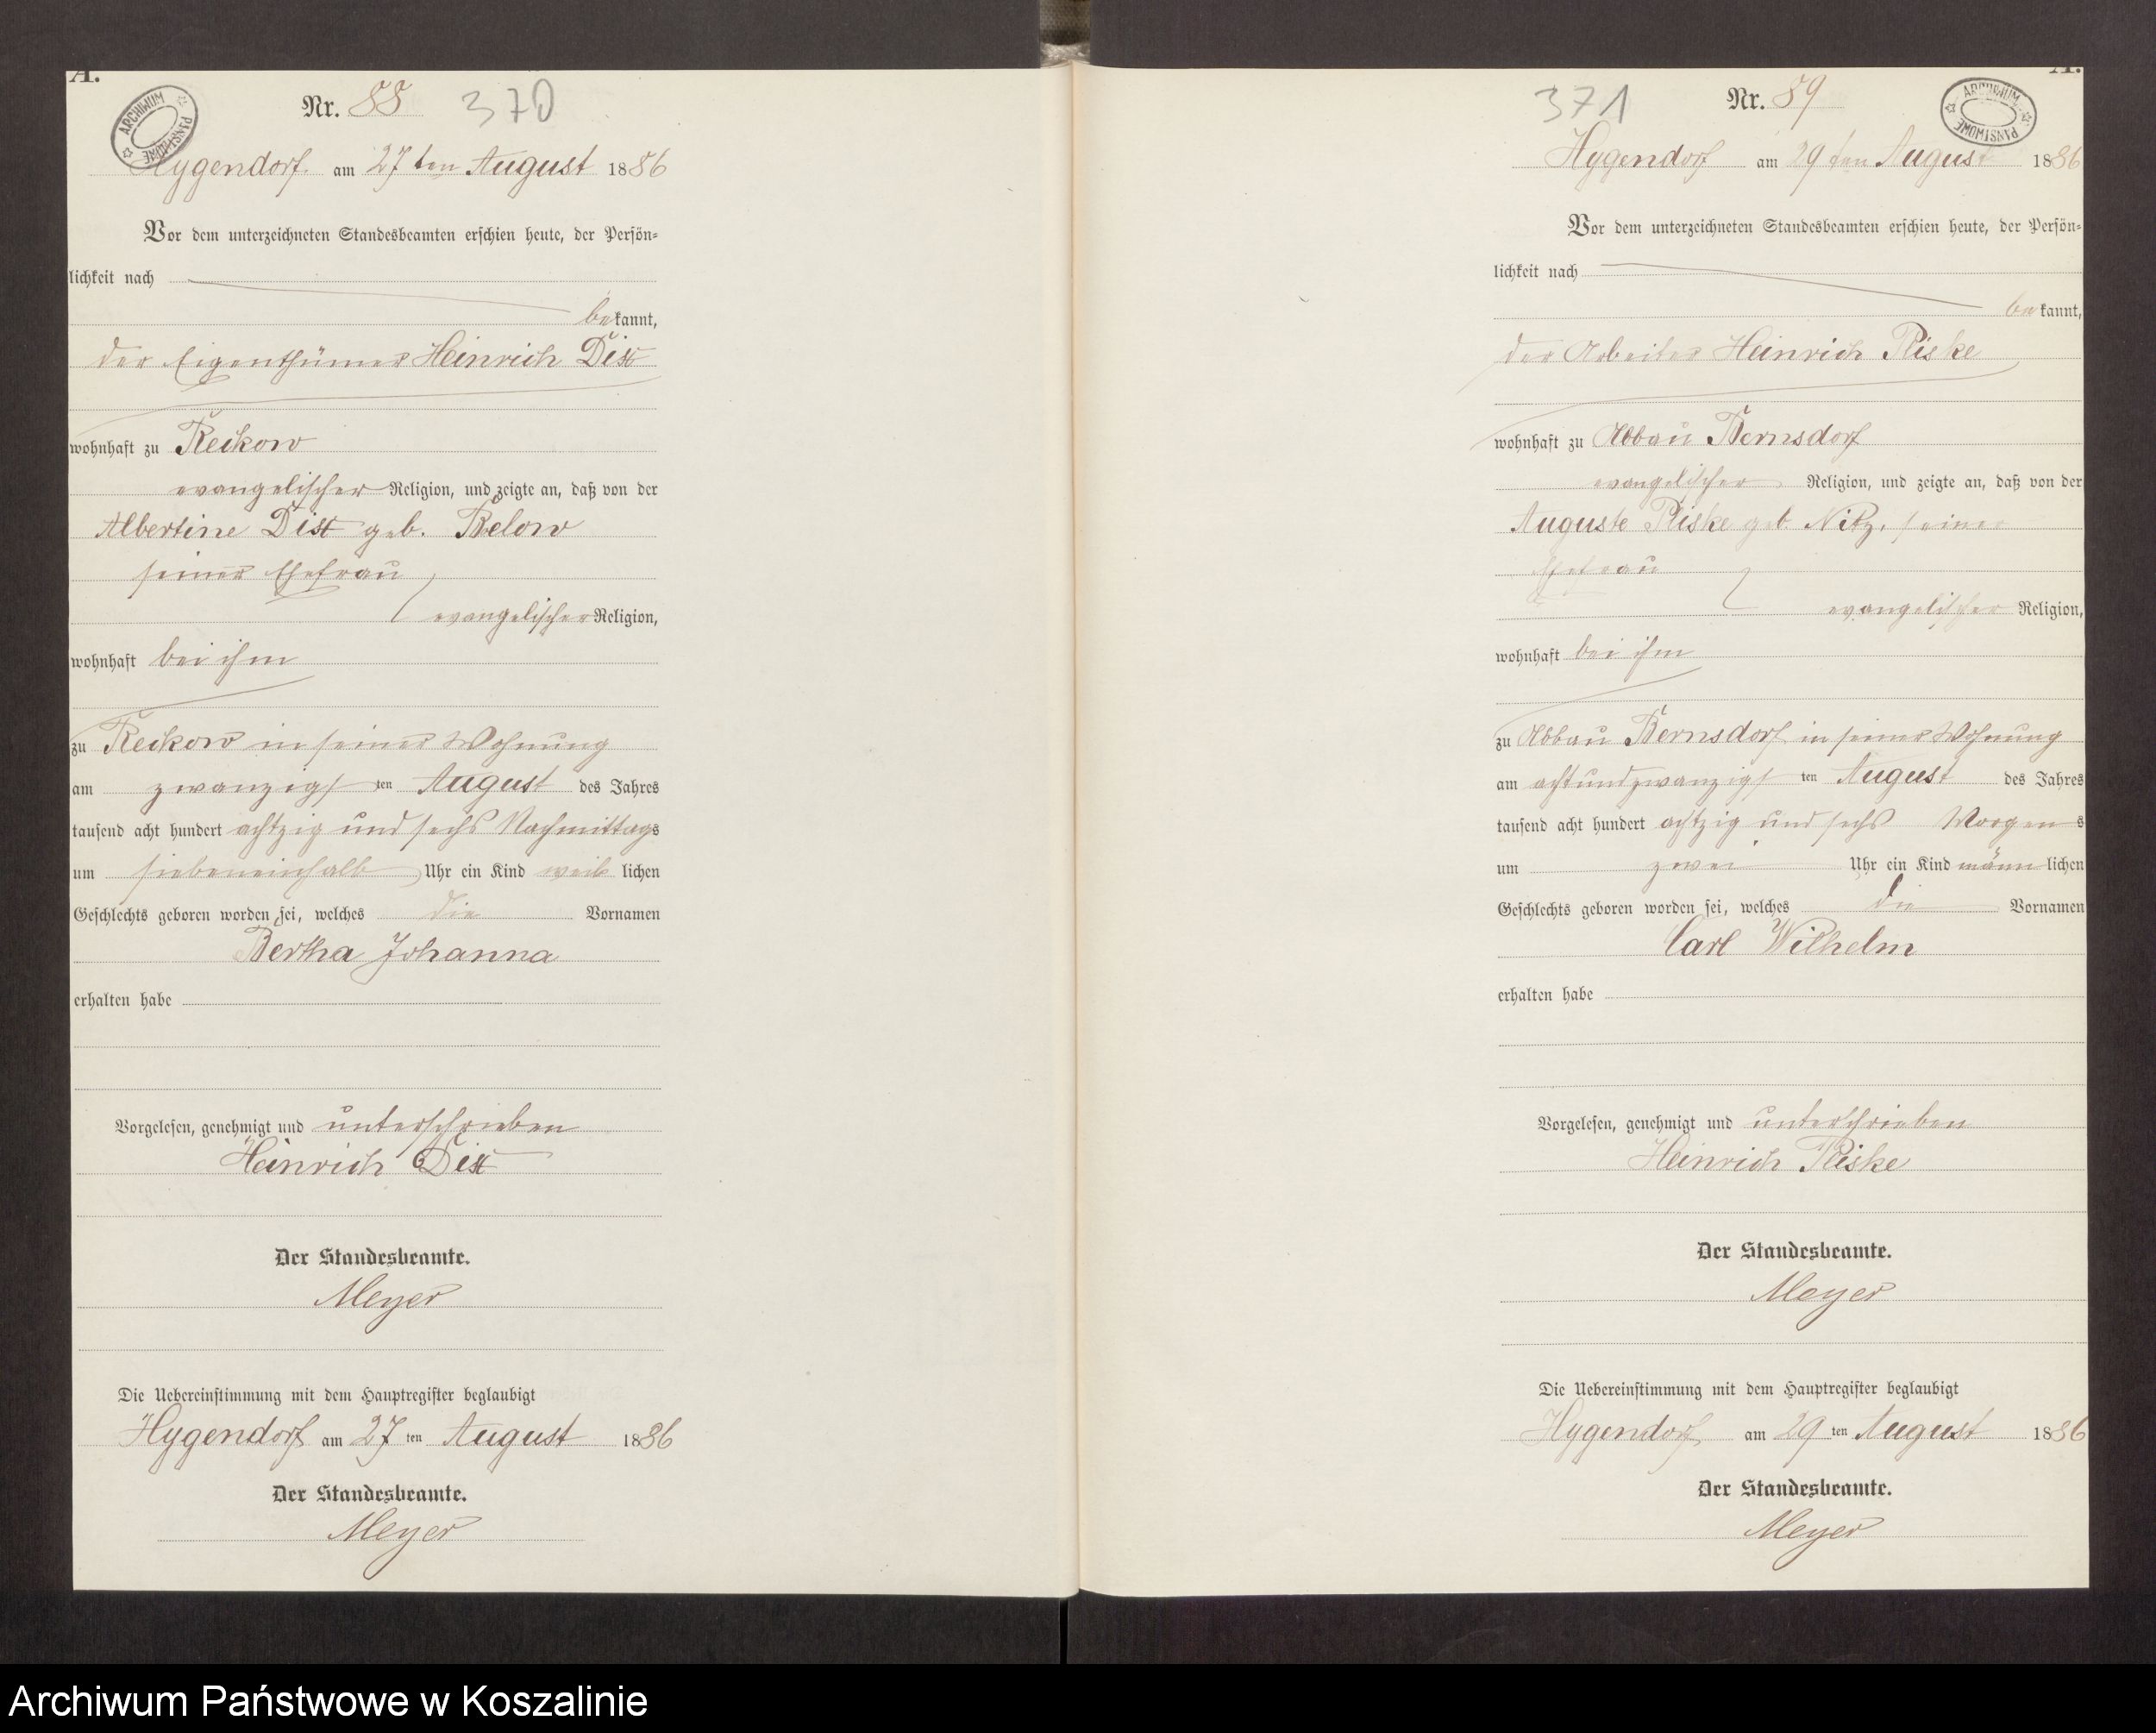 A.
ARCHIWUM PAŃSTWOWE
Nr. 88 370
Hygendorf am 27 ten August 1886
Vor dem unterzeichneten Standesbeamten erschien heute, der Persön=
lichkeit nach
bekannt,
der Eigenthümer Heinrich Dist
wohnhaft zu Reckow
evangelischer Religion, und zeigte an, daß von der
Albertine Dist geb. Below
seiner Ehefrau
evangelischer Religion,
wohnhaft bei ihm
zu Reckow in seiner Wohnung
am zwanzigsten August des Jahres
tausend acht hundert achtzig und sechs Nachmittags
um siebeneinhalb Uhr ein Kind weiblichen
Geschlechts geboren worden sei, welches die Vornamen
Bertha Johanna
erhalten habe
Vorgelesen, genehmigt und unterschrieben
Heinrich Dist
Der Standesbeamte.
Meyer
Die Uebereinstimmung mit dem Hauptregister beglaubigt
Hygendorf am 27 ten August 1886
Der Standesbeamte.
Meyer
A.
371 Nr. 89
ARCHIWUM PAŃSTWOWE
Hygendorf am 29 ten August 1886
Vor dem unterzeichneten Standesbeamten erschien heute, der Persön=
lichkeit nach
bekannt,
der Arbeiter Heinrich Piske
wohnhaft zu Abbau Bernsdorf
evangelischer Religion, und zeigte an, daß von der
Auguste Piske geb Nitz, seiner
Ehefrau
evangelischer Religion,
wohnhaft bei ihm
zu Abbau Bernsdorf in seiner Wohnung
am achtundzwanzigsten August des Jahres
tausend acht hundert achtzig und sechs Morgens
um zwei Uhr ein Kind männlichen
Geschlechts geboren worden sei, welches die Vornamen
Carl Wilhelm
erhalten habe
Vorgelesen, genehmigt und unterschrieben
Heinrich Piske
Der Standesbeamte.
Meyer
Die Uebereinstimmung mit dem Hauptregister beglaubigt
Hygendorf am 29 ten August 1886
Der Standesbeamte.
Meyer
Archiwum Państwowe w Koszalinie